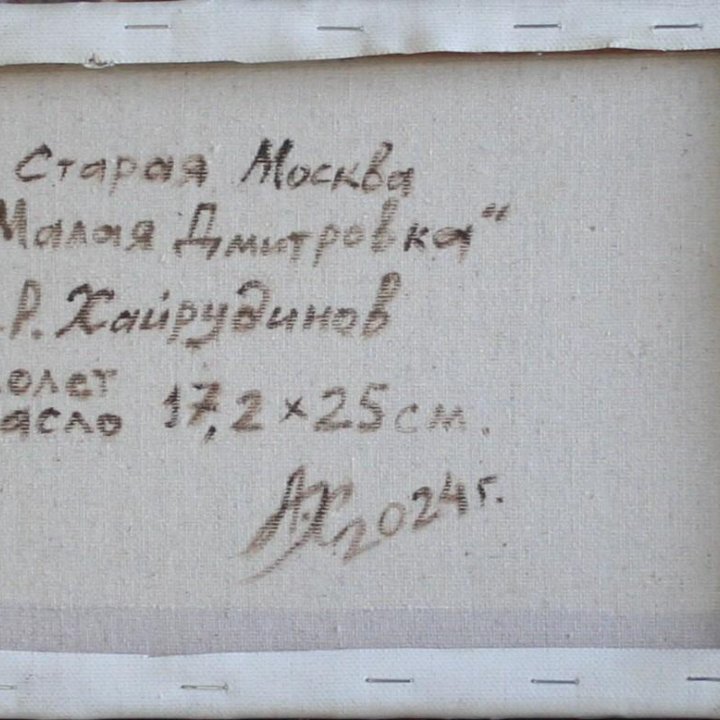 Старая Москва
Малая Дмитровка"
.Р. Хайрудинов
олст
асло 17,2 × 25 см.
АХ 2024 г.